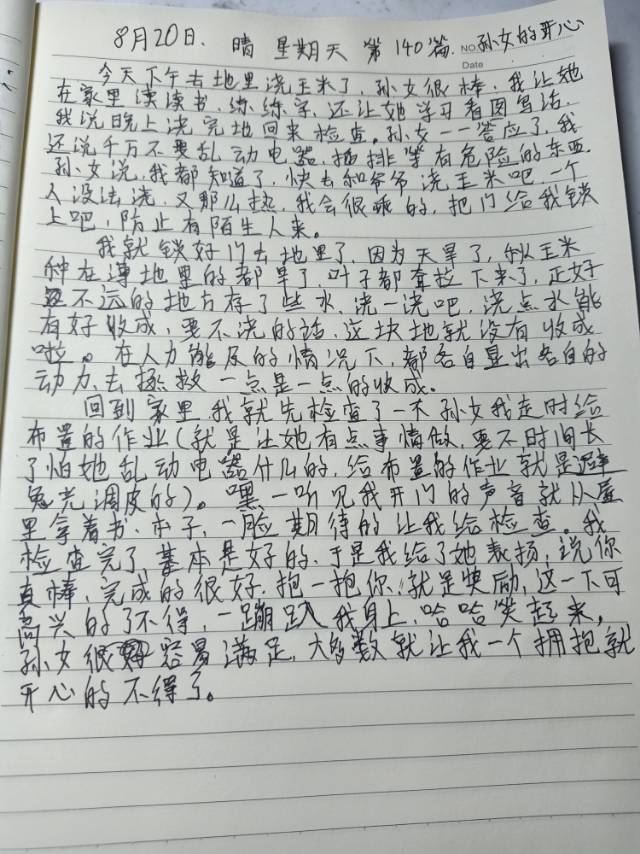 8月20日. 晴 星期天 第140篇. NO. 孙女的开心
Date
今天下午去地里浇玉米了，孙女很棒，我让她
在家里读读书，练练字，还让她学习看图写话，
我说晚上浇完地回来检查。孙女一一答应了，我
还说千万不要乱动电器，插排等有危险的东西。
孙女说，我都知道了，快去和爷爷浇玉米吧，一个
人没法浇，又那么热，我会很乖的，把门给我锁
上吧，防止有陌生人来。
我就锁好门去地里了，因为天旱了，秋玉米
种在薄地里的都旱了，叶子都耷拉下来了，正好
不远的地方存了些水，浇一浇吧，浇点水能
有好收成，要不浇的话，这块地就没有收成
啦。在人力能及的情况下，都各自显出各自的
动力，去拯救一点是一点的收成。
回到家里，我就先检查了一下孙女我走时给
布置的作业(就是让她有点事情做，要不时间长
了怕她乱动电器什么的，给布置的作业就是避
免充调皮的)。嘿一听见我开门的声音就从屋
里拿着书、本子，一脸期待的让我给检查。我
检查完了，基本是好的，于是我给了她表扬，说你
真棒，完成的很好，抱一抱你，就是奖励，这一下可
高兴的了不得，一蹦趴我身上，哈哈笑起来，
孙女很容易满足，大多数就让我一个拥抱就
开心的不得了。